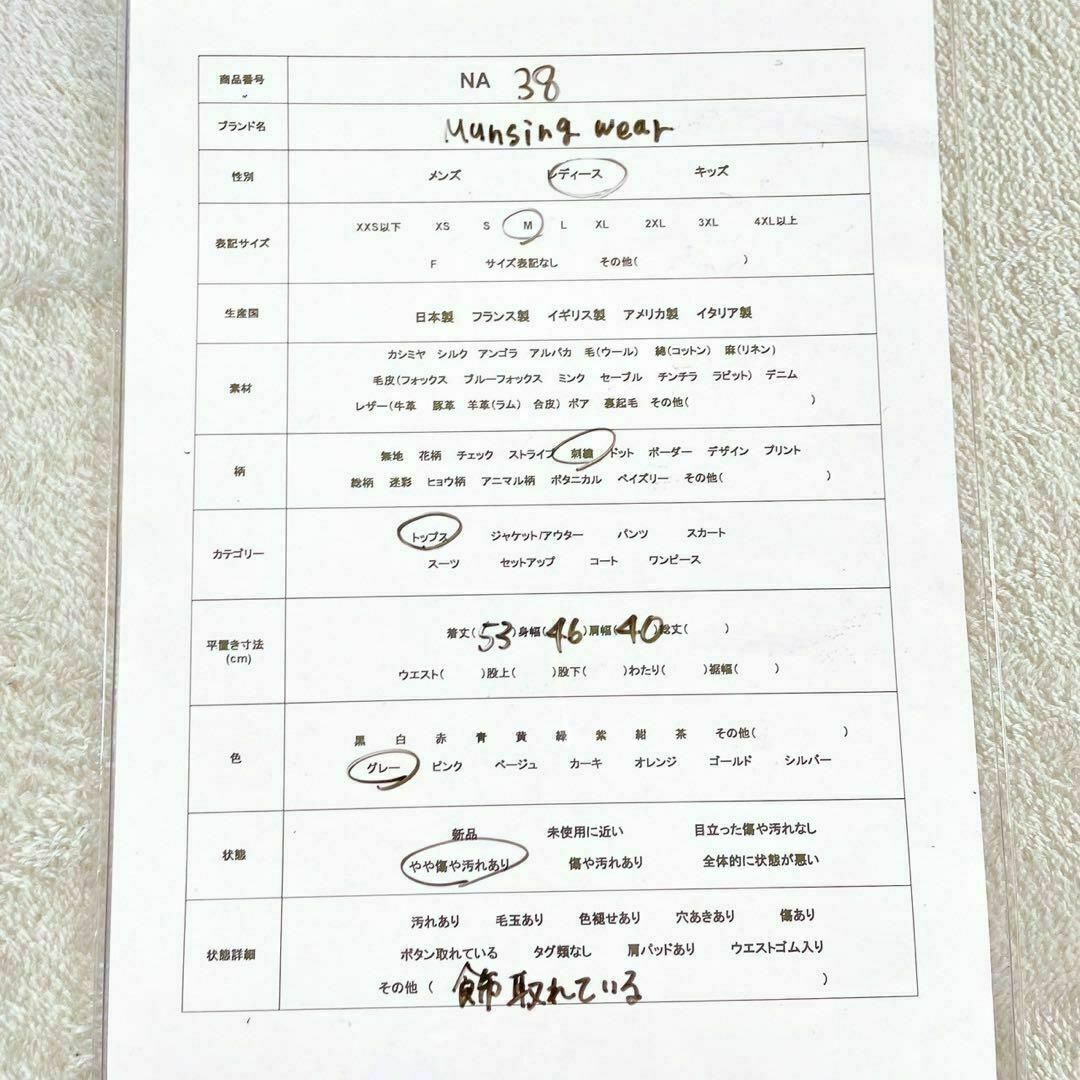 商品番号 NA 38
ブランド名 Munsing wear
性別 メンズ レディース キッズ
表記サイズ
XXS以下 XS S M L XL 2XL 3XL 4XL以上
F サイズ表記なし その他( )
生産国 日本製 フランス製 イギリス製 アメリカ製 イタリア製
素材
カシミヤ シルク アンゴラ アルパカ 毛(ウール) 綿(コットン) 麻(リネン)
毛皮(フォックス ブルーフォックス ミンク セーブル チンチラ ラビット) デニム
レザー(牛革 豚革 羊革(ラム) 合皮) ボア 裏起毛 その他( )
柄
無地 花柄 チェック ストライプ 刺繍 ドット ボーダー デザイン プリント
総柄 迷彩 ヒョウ柄 アニマル柄 ボタニカル ペイズリー その他( )
カテゴリー
トップス ジャケット/アウター パンツ スカート
スーツ セットアップ コート ワンピース
平置き寸法
(cm)
着丈(53)身幅(46)肩幅(40)総丈( )
ウエスト( )股上( )股下( )わたり( )裾幅( )
色
黒 白 赤 青 黄 緑 紫 紺 茶 その他( )
グレー ピンク ベージュ カーキ オレンジ ゴールド シルバー
状態
新品 未使用に近い 目立った傷や汚れなし
やや傷や汚れあり 傷や汚れあり 全体的に状態が悪い
状態詳細
汚れあり 毛玉あり 色褪せあり 穴あきあり 傷あり
ボタン取れている タグ類なし 肩パッドあり ウエストゴム入り
その他 ( 飾取れている )